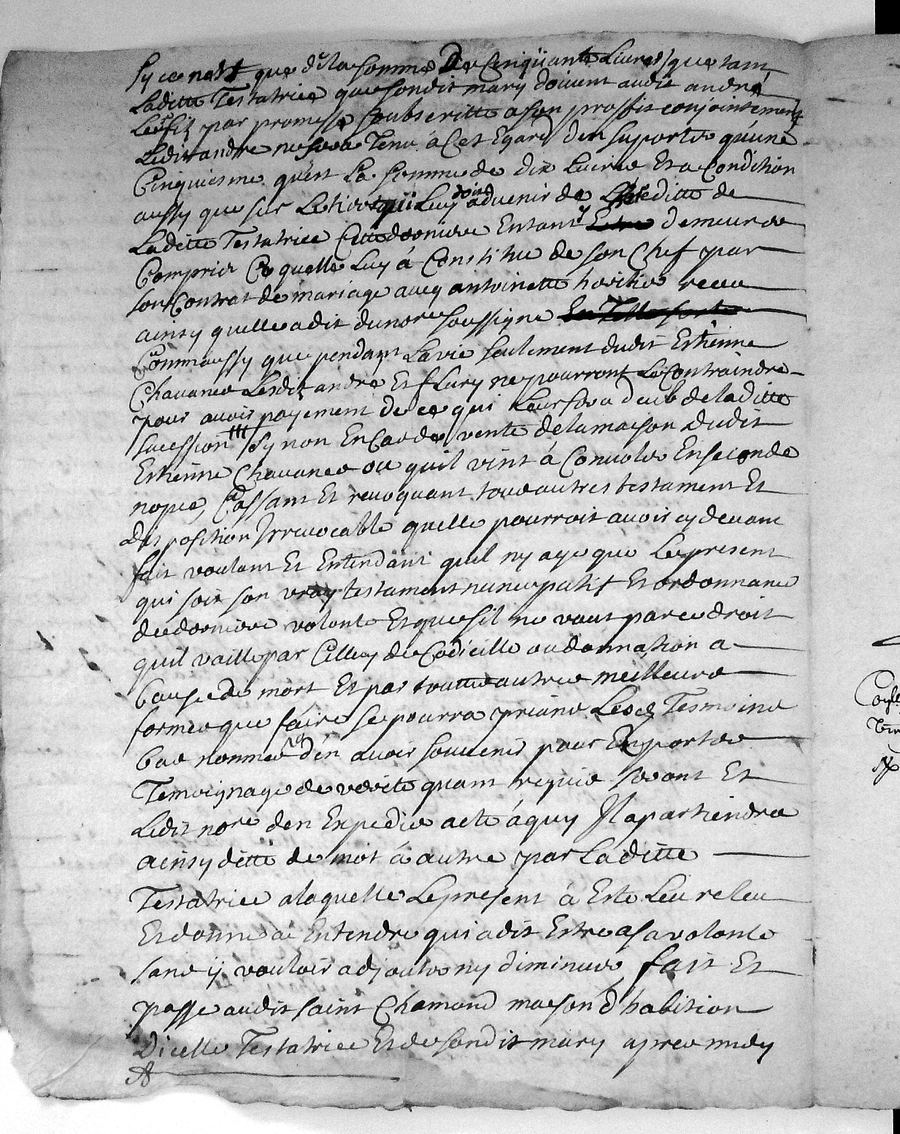 Sy ce nest que de la somme De Cinquante Livres que tant
Laditte Testatrice que sondit mary doivent audit andré
par promesse soubscritte a son proffit conjointement
Ledit andre ne sera Tenu à Cet Egard den suporter quune
Cinquiesme quest La somme de dix Livres Et a Condition
aussy que sur Le tiers qui Luy doit advenir de Lheredité de
Laditte Testatrice Cette derniere Entend y demeurer
Compris Ce quelle Luy à Constitué de son Chef par
son Contrat de mariage avec antoinette receu
ainsy quelle a dit du nore soussigne
Comm aussy que pendant La vie seulement dudit Estienne
Chavanes Lesdits andré Et fLury ne pourront Le Contraindre
pour avoir payement de ce qui Leur sera deub de laditte
sucession Sy non En Cas de vente de la maison dudit
Estienne Chavanes ou quil vint à Convoler En seconde
nopces, Cassant Et revoquant tous autres testament Et
disposition Irrevocable quelle pourroit avoir cy devant
fait voulant Et Entendant quil ny aye que Le present
qui soit son vray testament nuncupatif Et ordonnance
de derniere volonte Et que sil ne vaut par ce droit
quil vaille par Celluy de Codicille ou donnation a
Cause de mort Et par toutte autres meilleure
formes que faire se pourra priant Lesd Tesmoins
bas nommes den avoir souvenir pour En porter
Temoignage de verite quant requis seront Et
Ledit nore den Expedier acte à quy Il apartiendra
ainsy ditté de mot à autre par Laditte
Testatrice a laquelle Le present à Esté Leu releu
Et donné à Entendre qui a dit Estre sa volonte
sans y vouloir adjouter ny diminuer, fait Et
passe audit saint Chamond maison d'habition
Dicelle Testatrice Et de sondit mary apres midy